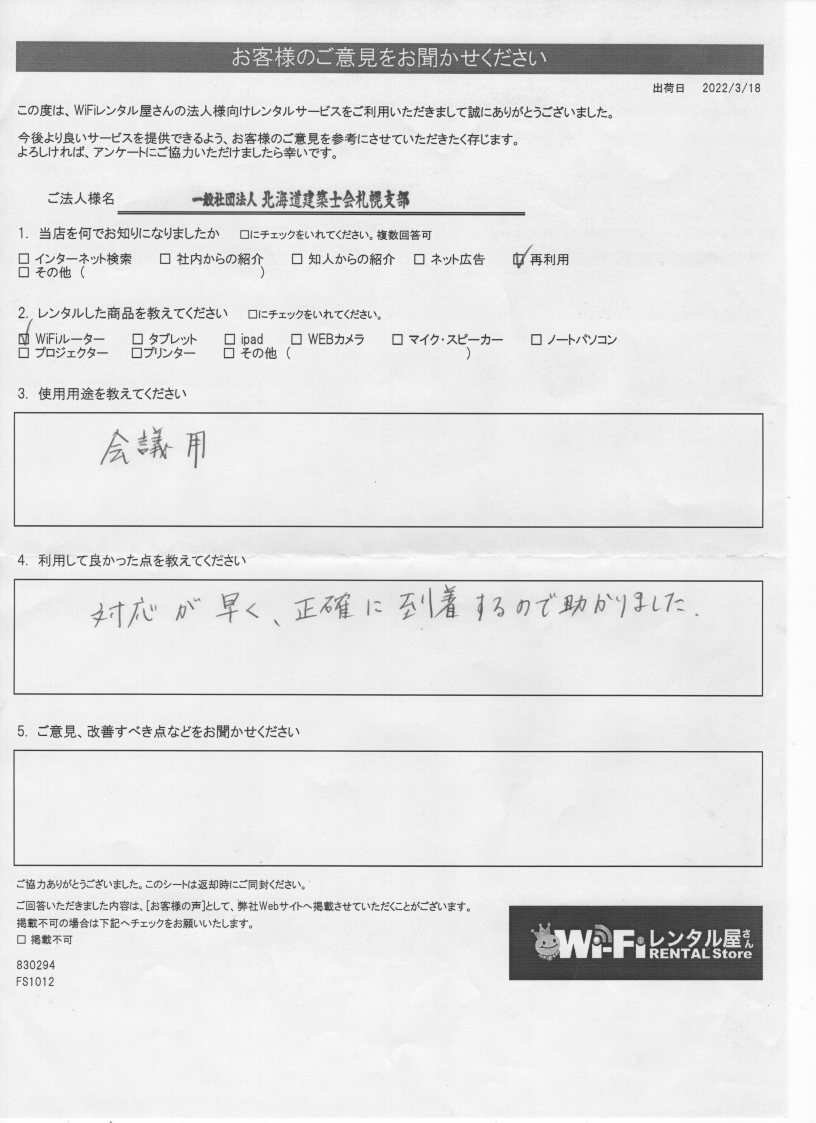 お客様のご意見をお聞かせください
出荷日 2022/3/18
この度は、WiFiレンタル屋さんの法人様向けレンタルサービスをご利用いただきまして誠にありがとうございました。
今後より良いサービスを提供できるよう、お客様のご意見を参考にさせていただきたく存じます。
よろしければ、アンケートにご協力いただけましたら幸いです。
ご法人様名 一般社団法人 北海道建築士会札幌支部
1. 当店を何でお知りになりましたか □にチェックをいれてください。複数回答可
□ インターネット検索 □ 社内からの紹介 □ 知人からの紹介 □ ネット広告 ☑ 再利用
□ その他 ( )
2. レンタルした商品を教えてください □にチェックをいれてください。
☑ WiFiルーター □ タブレット □ ipad □ WEBカメラ □ マイク・スピーカー □ ノートパソコン
□ プロジェクター □プリンター □ その他 ( )
3. 使用用途を教えてください
会議用
4. 利用して良かった点を教えてください
対応が早く、正確に到着するので助かりました.
5. ご意見、改善すべき点などをお聞かせください
ご協力ありがとうございました。このシートは返却時にご同封ください。
ご回答いただきました内容は、[お客様の声]として、弊社Webサイトへ掲載させていただくことがございます。
掲載不可の場合は下記へチェックをお願いいたします。
□ 掲載不可
830294
FS1012
Wi-Fi レンタル屋さん
RENTAL Store